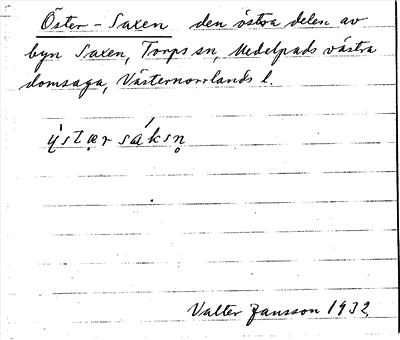 Öster-Saxen den östra delen av
byn Saxen, Torps sn, Medelpads västra
domsaga, Västernorrlands l.
Valter Jansson 1932